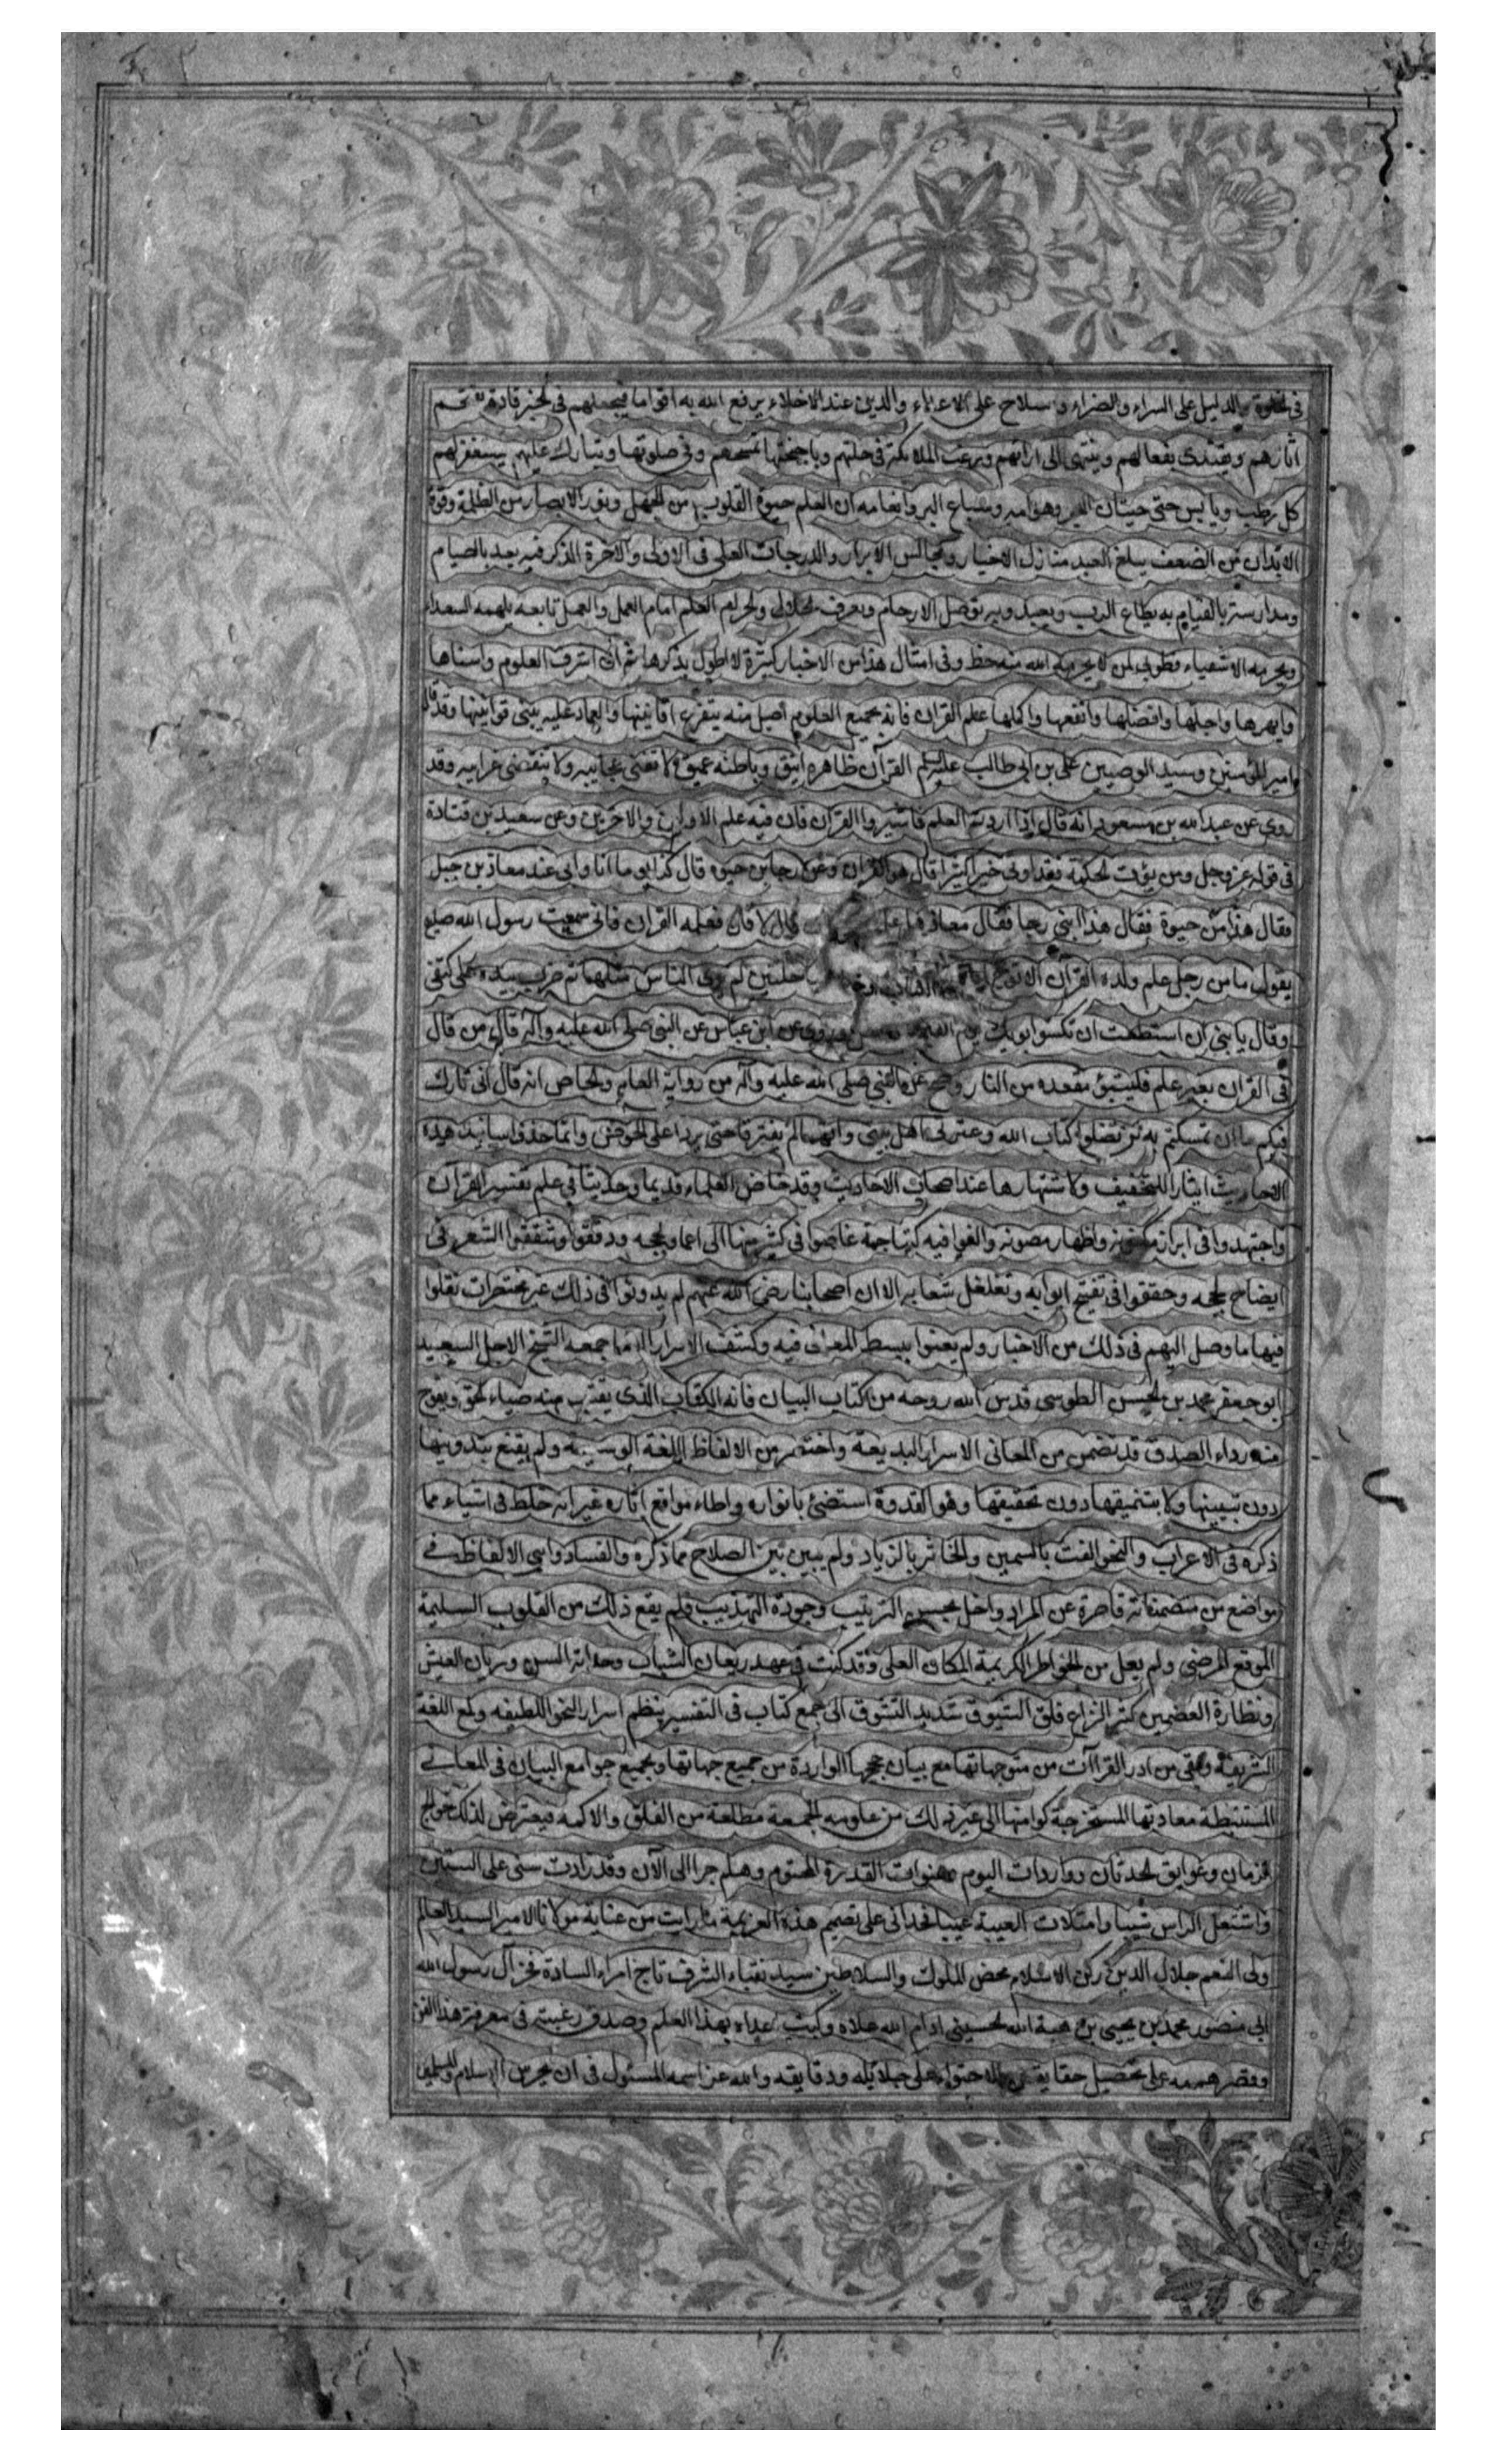 في الخلوة والدليل على السراء والضراء وسلاح على الاعداء والدين عند الاخلاء يرفع الله به اقواما فيجعلهم في الخير قادة تقتبس
اثارهم ويقتدى بفعالهم وينتهى الى ارائهم وترغب الملائكة في خلتهم وباجنحتها تمسحهم وفي صلوتها وتبارك عليهم يستغفر لهم
كل رطب ويابس حتى حيتان البحر وهوامه وسباع البر وانعامه ان العلم حيوة القلوب من الجهل ونور الابصار من الظلمة وقوة
الابدان من الضعف يبلغ العبد منازل الاخيار ومجالس الابرار والدرجات العلى في الاولى والاخرة الذكر فيه يعد بالصيام
ومدارسته بالقيام به يطاع الرب ويعبد وبه توصل الارحام ويعرف الحلال والحرام العلم امام العمل والعمل تابعه يلهمه السعداء
ويحرمه الاشقياء فطوبى لمن لا يحرمه الله منه حظه وفي امثال هذا من الاخبار كثرة لا اطول بذكرها ثم ان اشرف العلوم واسناها
وابهرها واجلها وافضلها وانفعها واكملها علم القران فانه بجميع العلوم اصيل منه يتفرع افانينها والعماد عليه يبتنى قوانينها وقد قال
امير المؤمنين وسيد الوصيين على بن ابي طالب عليه السلم القرآن ظاهره انيق وباطنه عميق لا تفنى عجايبه ولا تنقضى غرايبه وقد
روي عن عبد الله بن مسعود انه قال اذا اردتم العلم فاثيروا القران فان فيه علم الاولين والاخرين وعن سعيد بن قتادة
في قوله عز وجل ومن يؤت الحكمة فقد اوتى خيرا كثيرا قال هو القران وعن رجا بن حيوة قال كنا بي ما انا وابي عند معاذ بن جبل
فقال هذا من حيوة فقال هذا ابني رجا فقال معاذ هل علمته قال لا قال فعلمه القران فاني سمعت رسول الله صلع
يقول ما من رجل علم ولده القرآن الا توج حلتين لم ير الناس مثلهما ثم ضرب بيده على كتفى
وقال يا بني ان استطعت ان تكسو ابويك يوم القيمة وروى عن ابن عباس عن النبي صلى الله عليه وآله قال من قال
في القران بغير علم فليتبوئ مقعده من النار وصح عن النبي صلى الله عليه وآله من رواية العام والخاص انه قال انى تارك
فيكم ما ان تمسكتم به لن تضلوا كتاب الله وعترتى اهل بيتى وانهما لم يفترقا حتى يردا على الحوض وانما حذف اسانيد هذه
الاحاديث ايثارا للتخفيف ولاشتهارها عند اصحاب الاحاديث وقد خاض العلماء قديما وحديثا في علم تفسير القران
واجتهدوا في ابراز مكنونه واظهار مصونه والفوا فيه كتبا جمة غاصوا في كثير منها الى اعماق لججه ودققوا وشققوا الشعر في
ايضاح حججه وحققوا في تفتيح ابوابه وتغلغل شعابه الا ان اصحابنا رضي الله عنهم لم يدونوا في ذلك غير مختصرات نقلوا
فيها ما وصل اليهم في ذلك من الاخبار ولم يعنوا ببسط المعانى فيه وكشف الاسرار الا ما جمعه الشيخ الاجل السعيد
ابو جعفر محمد بن الحسن الطوسى قدس الله روحه من كتاب البيان فانه الكتاب الذى يقتبس منه ضياء الحق ويلوح
منه رداء الصدق قد تضمن من المعانى الاسرار البديعة واحتضر من الالفاظ اللغة الوسيعة ولم يقنع بتدوينها
دون تبيينها ولا بتنميقها دون تحقيقها وهو القدوة استضئ بانواره واطاء مواقع اثاره غير انه خلط في اشياء مما
ذكره في الاعراب والنحو الغث بالسمين والخاثر بالزباد ولم يبين بين الصلاح مما ذكره والفساد وادى الالفاظ في
مواضع من متضمناته قاصرة عن المراد واخل بحسن الترتيب وجودة التهذيب فلم يقع ذلك من القلوب السليمة
الموقع المرضى ولم يعل من الخواطر الكريمة المكان العلى وقد كنت في عهد ريعان الشباب وحداثة السن وريان العيش
ونظارة الغصمين كثير النزاع قلق الشوق شديد التشوق الى جمع كتاب في التفسير ينظم اسرار النحو اللطيفه ولمع اللغة
الشريفة ويفي من ادر القراآت من متوجهاتها مع بيان حججها الواردة من جميع جهاتها ويجمع جوامع البيان في المعاني
المستنبطة معادنها المستخرجة كوامنها الى غير ذلك من علومه الجمعة مطلعة من الغلق والاكمه فيعترض لذلك حوالج
الزمان وعوايق الحدثان وواردات اليوم وهفوات القدرة المحتوم وهلم جرا الى الآن وقد زادت سنى على الستين
واشتعل الراس شيبا وامتلات العيبة عيبا فحداني على تصميم هذه العزيمة ما رايت من عناية مولانا الامير السيد العالم
ولى النعم جلال الدين ركن الاسلام محض الملوك والسلاطين سيد نقباء الشرف تاج امراء السادة فخر آل رسول الله
ابي منصور محمد بن يحيى بن هبة الله الحسيني ادام الله علاه وكبت عداه بهذا العلم وصدق رغبته في معرفة هذا الفن
وقصر هممه على تحصيل حقايقه والاحتواء على جلائله ودقايقه والله عز اسمه المسئول في ان يحرس الاسلام والمسلمين